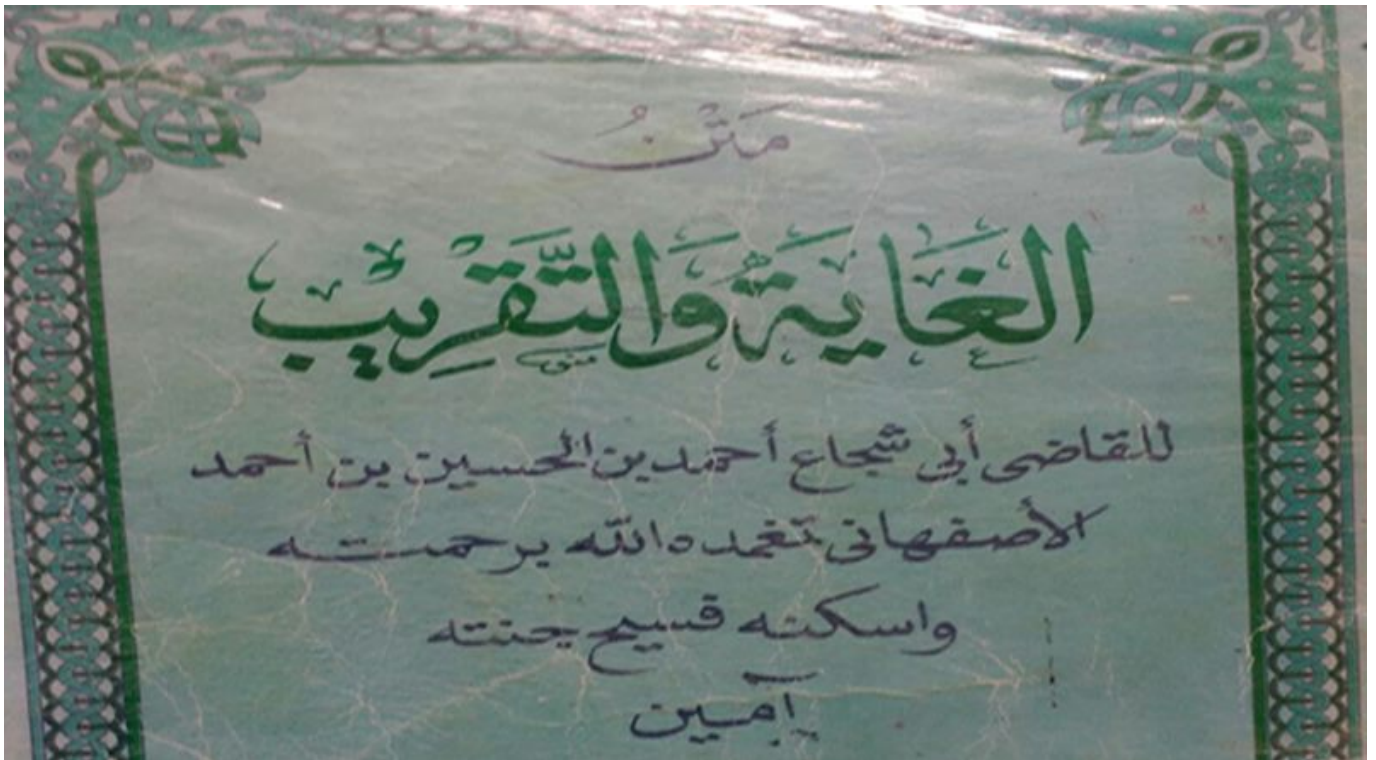 مَتْنُ
الغَايَةُ وَالتَّقْرِيْبُ
للقاضى أبى شجاع أحمد بن الحسين بن أحمد
الأصفهانى تغمده الله برحمته
واسكنه فسيح جنته
آمين